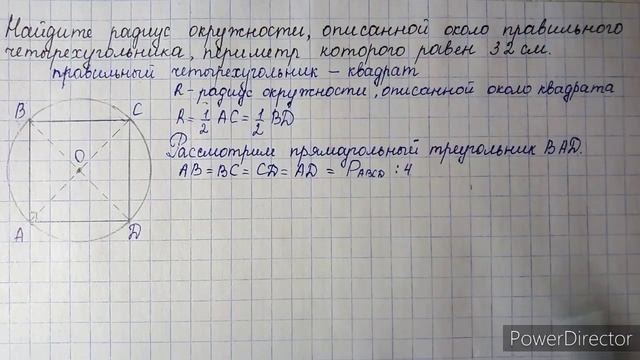 Найдите радиус окружности, описанной около правильного
четырехугольника, периметр которого равен 32 см.
правильный четырехугольник – квадрат
R - радиус окружности, описанной около квадрата
R = 1/2 AC = 1/2 BD
Рассмотрим прямоугольный треугольник BAD.
AB = BC = CD = AD = P_ABCD : 4
B C
O
A D
PowerDirector